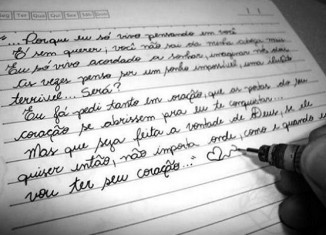 Seg Ter Qua Qui Sex Sáb Dom
"... Porque eu só vivo pensando em você
É sem querer, você não sai da minha cabeça mais
Eu só vivo acordado a sonhar, imaginar nós dois
Às vezes penso ser um sonho impossível, uma ilusão
terrível... Será?
Eu já pedi tanto em oração, que as portas do seu
coração se abrissem pra eu te conquistar...
Mas que seja feita a vontade de Deus, se ele
quiser então, não importa onde, como e quando eu
vou ter seu coração..."